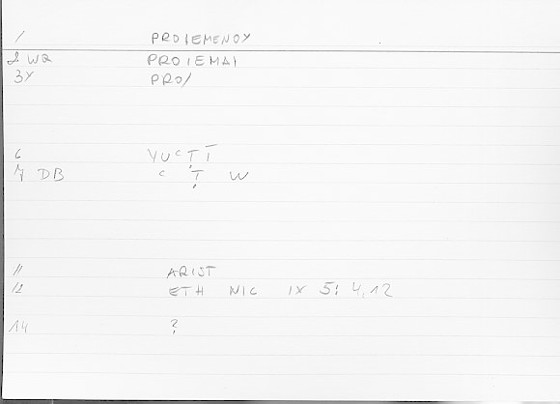 1 PROIEMENOY
2 WR PROIEMAI
3Y PRO/
6
7 DB W
11 ARIST
12 ETH NIC IX 5: 4,12
14 ?